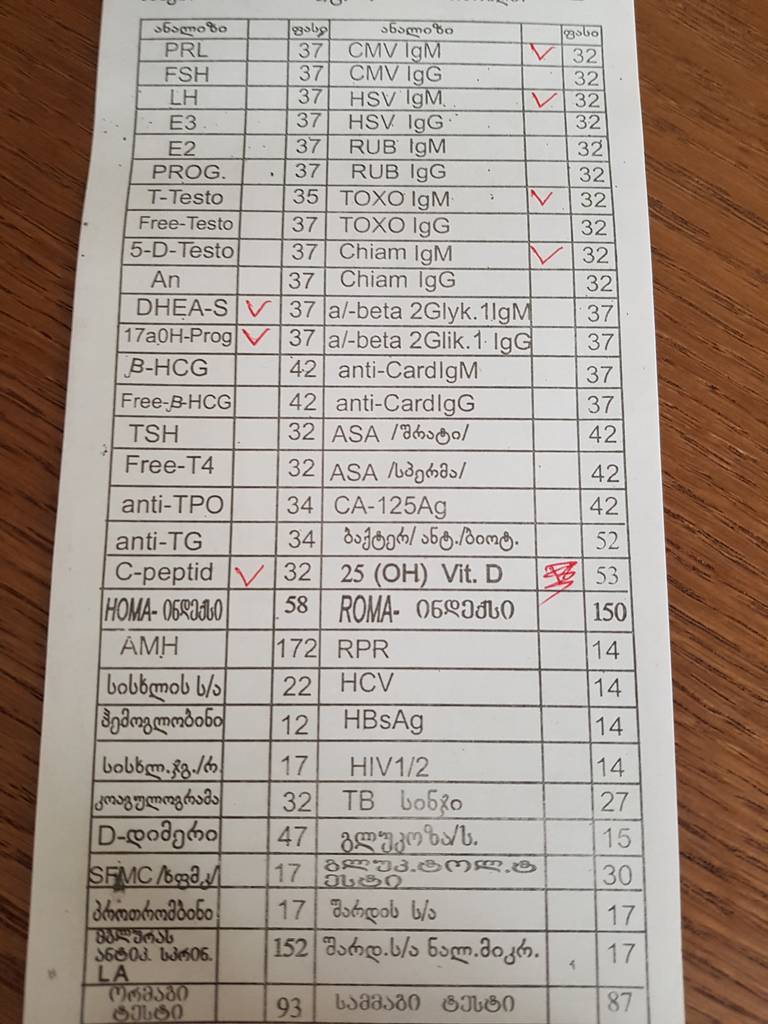 ანალიზი ფასი ანალიზი ფასი
PRL 37 CMV IgM ✓ 32
FSH 37 CMV IgG 32
LH 37 HSV IgM ✓ 32
E3 37 HSV IgG 32
E2 37 RUB IgM 32
PROG. 37 RUB IgG 32
T-Testo 35 TOXO IgM ✓ 32
Free-Testo 37 TOXO IgG 32
5-D-Testo 37 Chiam IgM ✓ 32
An 37 Chiam IgG 32
DHEA-S ✓ 37 a/-beta 2Glyk.1IgM 37
17a0H-Prog ✓ 37 a/-beta 2Glik.1 IgG 37
β-HCG 42 anti-CardIgM 37
Free-β-HCG 42 anti-CardIgG 37
TSH 32 ASA /შრატი/ 42
Free-T4 32 ASA /სპერმა/ 42
anti-TPO 34 CA-125Ag 42
anti-TG 34 ბაქტერ/ ანტ./ბიოტ. 52
C-peptid ✓ 32 25 (OH) Vit. D 53
HOMA- ინდექსი 58 ROMA- ინდექსი 150
AMH 172 RPR 14
სისხლის ს/ა 22 HCV 14
ჰემოგლობინი 12 HBsAg 14
სისხლ.ჯგ./რ. 17 HIV1/2 14
კოაგულოგრამა 32 TB სინჯი 27
D-დიმერი 47 გლუკოზა/ს. 15
SFMC /ხფმკ/ 17 გლუკ.ტოლ.ტ
ესტი 30
პროთრომბინი 17 შარდის ს/ა 17
მგლურას
ანტიკ. სკრინ. 152 შარდ.ს/ა ნალ.მიკრ. 17
LA
ორმაგი
ტესტი 93 სამმაგი ტესტი 87